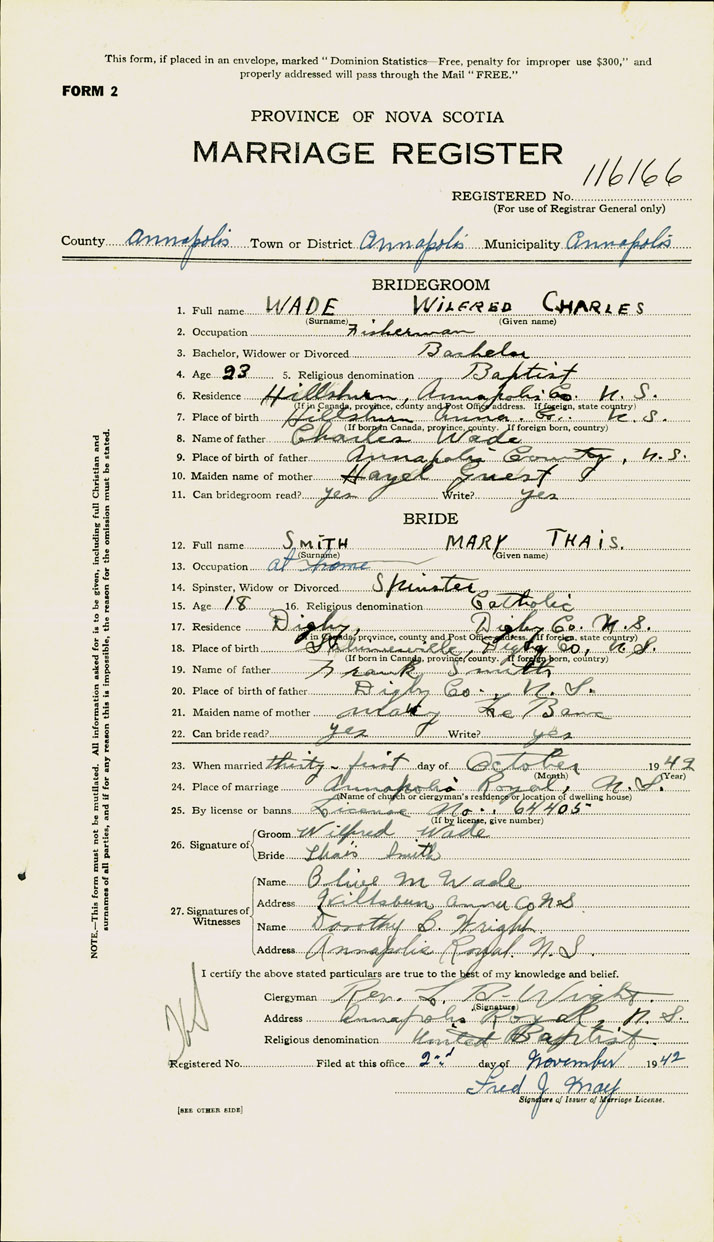 This form, if placed in an envelope, marked "Dominion Statistics—Free, penalty for improper use $300," and
properly addressed will pass through the Mail "FREE."
FORM 2
PROVINCE OF NOVA SCOTIA
MARRIAGE REGISTER
116166
REGISTERED No.
(For use of Registrar General only)
County Annapolis Town or District Annapolis Municipality Annapolis
BRIDEGROOM
1. Full name WADE WILFRED CHARLES
(Surname) (Given name)
2. Occupation Fisherman
3. Bachelor, Widower or Divorced Bachelor
4. Age 23 5. Religious denomination Baptist
6. Residence Hillsburn, Annapolis Co. N. S.
(If in Canada, province, county and Post Office address. If foreign, state country)
7. Place of birth Hillsburn Anna. Co. N. S.
(If born in Canada, province, county. If foreign born, country)
8. Name of father Charles Wade
9. Place of birth of father Annapolis County, N. S.
10. Maiden name of mother Hazel Guest
11. Can bridegroom read? yes Write? yes
BRIDE
12. Full name SMITH MARY THAIS.
(Surname) (Given name)
13. Occupation at home
14. Spinster, Widow or Divorced Spinster
15. Age 18 16. Religious denomination Catholic
17. Residence Digby, Digby Co. N. S.
(If in Canada, province, county and Post Office address. If foreign, state country)
18. Place of birth Digby Co, N. S.
(If born in Canada, province, county. If foreign born, country)
19. Name of father Frank Smith
20. Place of birth of father Digby Co., N. S.
21. Maiden name of mother Mary Le Banc
22. Can bride read? yes Write? yes
23. When married thirty-first day of October 1942
(Month) (Year)
24. Place of marriage Annapolis Royal, N. S.
(Name of church or clergyman's residence or location of dwelling house)
25. By license or banns License No. 04405
(If by license, give number)
26. Signature of Groom Wilfred Wade
Bride Thais Smith
27. Signatures of Witnesses Name Olive M Wade
Address Hillsburn Anna Co N S
Name Dorothy B. Wright
Address Annapolis Royal. N. S.
I certify the above stated particulars are true to the best of my knowledge and belief.
Clergyman Rev. L. B. Wright
(Signature)
Address Annapolis Royal, N. S.
Religious denomination United Baptist
Registered No. Filed at this office 2nd day of November 1942
Fred J May
Signature of Issuer of Marriage License.
[SEE OTHER SIDE]
NOTE.—This form must not be mutilated. All information asked for is to be given, including full Christian and
surnames of all parties, and if for any reason this is impossible, the reason for the omission must be stated.